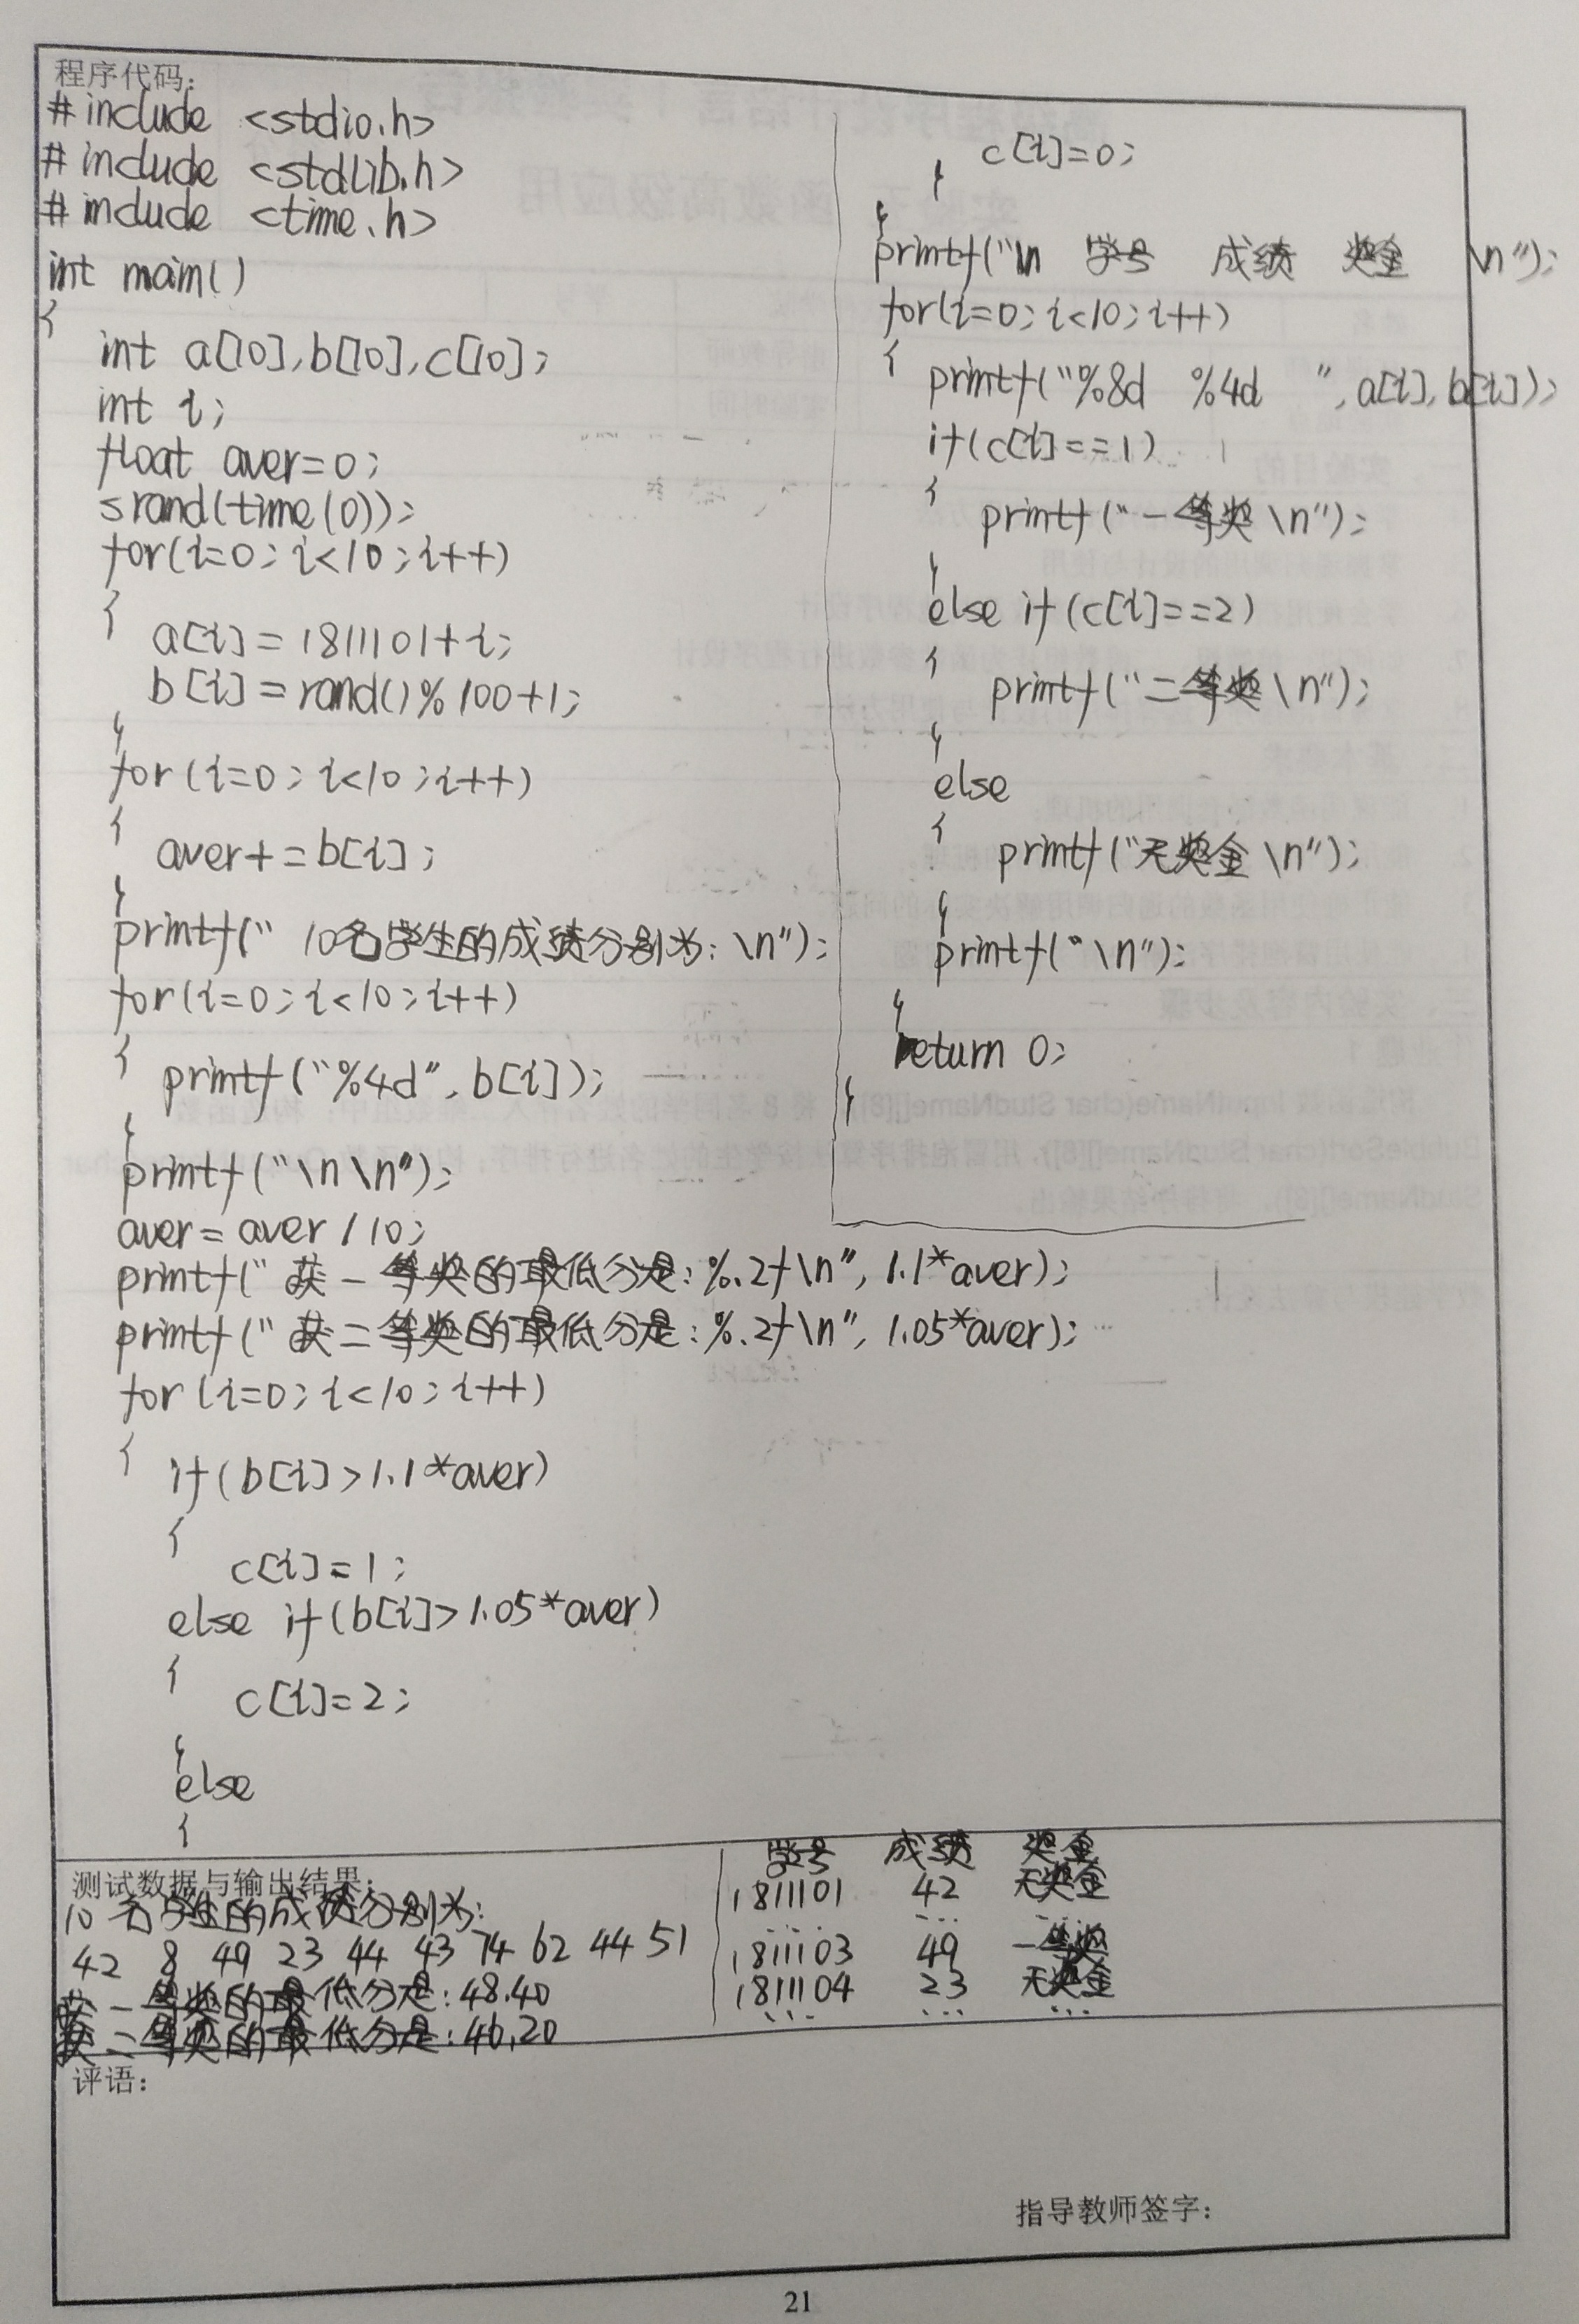 程序代码：
#include <stdio.h>
#include <stdlib.h>
#include <time.h>
int main()
{
int a[10],b[10],c[10];
int i;
float aver=0;
srand(time(0));
for(i=0;i<10;i++)
{
a[i]=1811101+i;
b[i]=rand()%100+1;
}
for(i=0;i<10;i++)
{
aver+=b[i];
}
printf(" 10名学生的成绩分别为：\n");
for(i=0;i<10;i++)
{
printf("%4d",b[i]);
}
printf("\n\n");
aver=aver/10;
printf("获一等奖的最低分是：%.2f\n",1.1*aver);
printf("获二等奖的最低分是：%.2f\n",1.05*aver);
for(i=0;i<10;i++)
{
if(b[i]>1.1*aver)
{
c[i]=1;
else if(b[i]>1.05*aver)
{
c[i]=2;
}
else
{
c[i]=0;
}
}
printf("\n 学号 成绩 奖金 \n");
for(i=0;i<10;i++)
{
printf("%8d %4d ",a[i],b[i]);
if(c[i]==1)
{
printf("一等奖\n");
}
else if(c[i]==2)
{
printf("二等奖\n");
}
else
{
printf("无奖金\n");
}
printf("\n");
}
return 0;
}
测试数据与输出结果：
10名学生的成绩分别为：
42 8 49 23 44 43 74 62 44 51
获一等奖的最低分是：48.40
获二等奖的最低分是：46.20
学号 成绩 奖金
1811101 42 无奖金
... ... ...
1811103 49 一等奖
1811104 23 无奖金
... ... ...
评语：
指导教师签字：
21